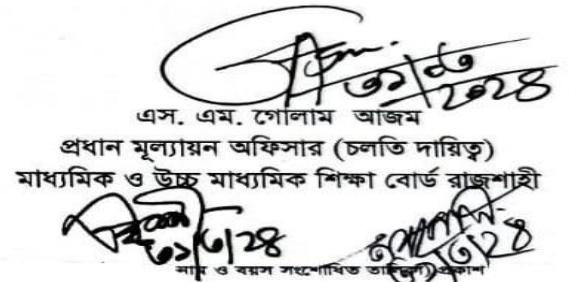 ৩১/০৩
২০২৪
এস. এম. গোলাম আজম
প্রধান মূল্যায়ন অফিসার (চলতি দায়িত্ব)
মাধ্যমিক ও উচ্চ মাধ্যমিক শিক্ষা বোর্ড রাজশাহী
৩১/৩/২৪
৩১/৩/২৪
নাম ও বয়স সংশোধিত